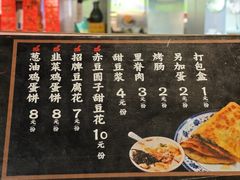 葱油鸡蛋饼 8元/份
韭菜鸡蛋饼 8元/份
招牌豆腐花 7元/份
赤豆圆子甜豆花 10元/份
甜豆浆 4元/份
里脊肉 3元/份
烤肠 2元/份
另加蛋 2元/份
打包盒 1元/份